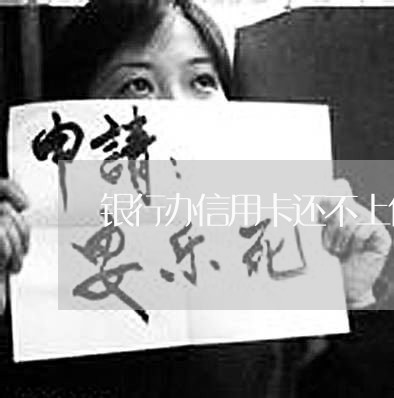 申請：
银行办信用卡还不上
要乐死